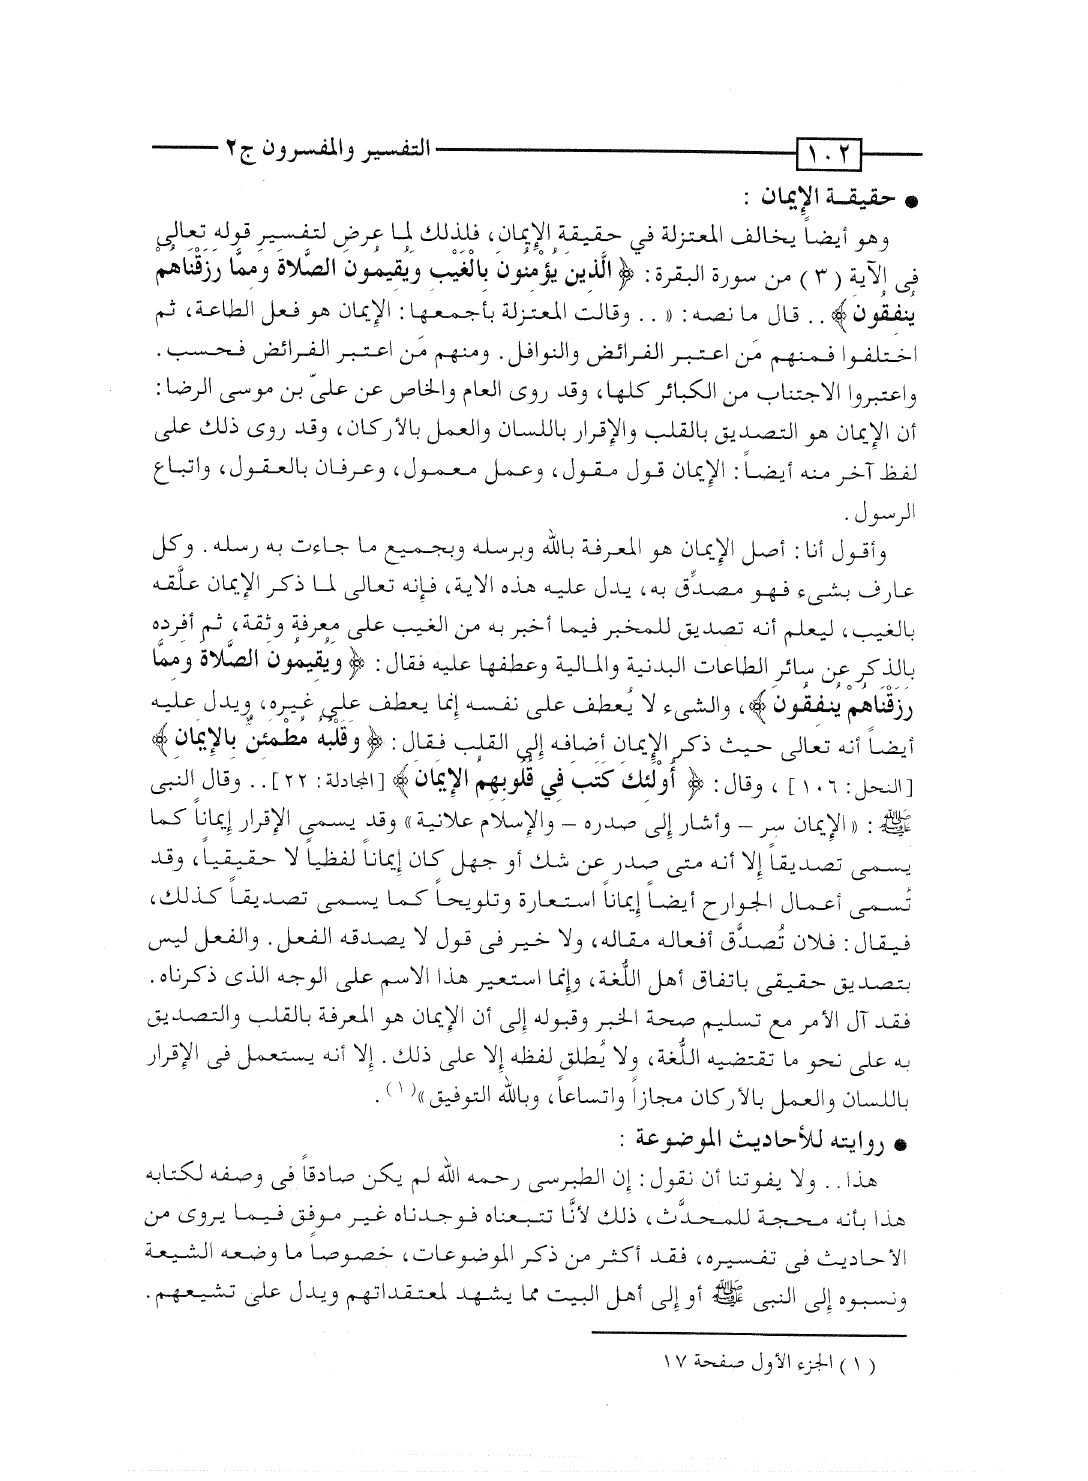 ١٠٢ التفسير والمفسرون ج٢
● حقيقة الإيمان :
وهو أيضاً يخالف المعتزلة في حقيقة الإيمان، فلذلك لما عرض لتفسير قوله تعالى
فى الآية (٣) من سورة البقرة: ﴿الَّذِينَ يُؤْمِنُونَ بِالْغَيْبِ وَيُقِيمُونَ الصَّلاةَ وَمِمَّا رَزَقْنَاهُمْ
يُنفِقُونَ﴾ .. قال ما نصه: « .. وقالت المعتزلة بأجمعها: الإيمان هو فعل الطاعة، ثم
اختلفوا فمنهم مَن اعتبر الفرائض والنوافل. ومنهم مَن اعتبر الفرائض فحسب.
واعتبروا الاجتناب من الكبائر كلها، وقد روى العام والخاص عن علىّ بن موسى الرضا:
أن الإيمان هو التصديق بالقلب والإقرار باللسان والعمل بالأركان، وقد روى ذلك على
لفظ آخر منه أيضاً: الإيمان قول مقول، وعمل معمول، وعرفان بالعقول، واتباع
الرسول .
وأقول أنا: أصل الإيمان هو المعرفة بالله وبرسله وبجميع ما جاءت به رسله. وكل
عارف بشىء فهو مصدِّق به، يدل عليه هذه الاية، فإنه تعالى لما ذكر الإيمان علَّقه
بالغيب، ليعلم أنه تصديق للمخبر فيما أخبر به من الغيب على معرفة وثقة، ثم أفرده
بالذكر عن سائر الطاعات البدنية والمالية وعطفها عليه فقال: ﴿وَيُقِيمُونَ الصَّلاةَ وَمِمَّا
رَزَقْنَاهُمْ يُنفِقُونَ﴾، والشىء لا يُعطف على نفسه إنما يعطف على غيره، ويدل عليه
أيضاً أنه تعالى حيث ذكر الإيمان أضافه إلى القلب فقال: ﴿وَقَلْبُهُ مُطْمَئِنٌّ بِالإِيمَانِ﴾
[النحل: ١٠٦] ، وقال: ﴿أُوْلَئِكَ كَتَبَ فِي قُلُوبِهِمُ الإِيمَانَ﴾ [المجادلة: ٢٢] .. وقال النبى
ﷺ : «الإيمان سر – وأشار إلى صدره – والإسلام علانية» وقد يسمى الإقرار إيماناً كما
يسمى تصديقاً إلا أنه متى صدر عن شك أو جهل كان إيماناً لفظياً لا حقيقياً، وقد
تُسمى أعمال الجوارح أيضاً إيماناً استعارة وتلويحاً كما يسمى تصديقاً كذلك،
فيقال: فلان تُصدَّق أفعاله مقاله، ولا خير فى قول لا يصدقه الفعل. والفعل ليس
بتصديق حقيقى باتفاق أهل اللُّغة، وإنما استعير هذا الاسم على الوجه الذى ذكرناه.
فقد آل الأمر مع تسليم صحة الخبر وقبوله إلى أن الإيمان هو المعرفة بالقلب والتصديق
به على نحو ما تقتضيه اللُّغة، ولا يُطلق لفظه إلا على ذلك. إلا أنه يستعمل فى الإقرار
باللسان والعمل بالأركان مجازاً واتساعاً، وبالله التوفيق»(١) .
● روايته للأحاديث الموضوعة :
هذا.. ولا يفوتنا أن نقول: إن الطبرسى رحمه الله لم يكن صادقاً فى وصفه لكتابه
هذا بأنه محجة للمحدِّث، ذلك لأنَّا تتبعناه فوجدناه غير موفق فيما يروى من
الأحاديث فى تفسيره، فقد أكثر من ذكر الموضوعات، خصوصاً ما وضعه الشيعة
ونسبوه إلى النبى ﷺ أو إلى أهل البيت مما يشهد لمعتقداتهم ويدل على تشيعهم.
(١) الجزء الأول صفحة ١٧